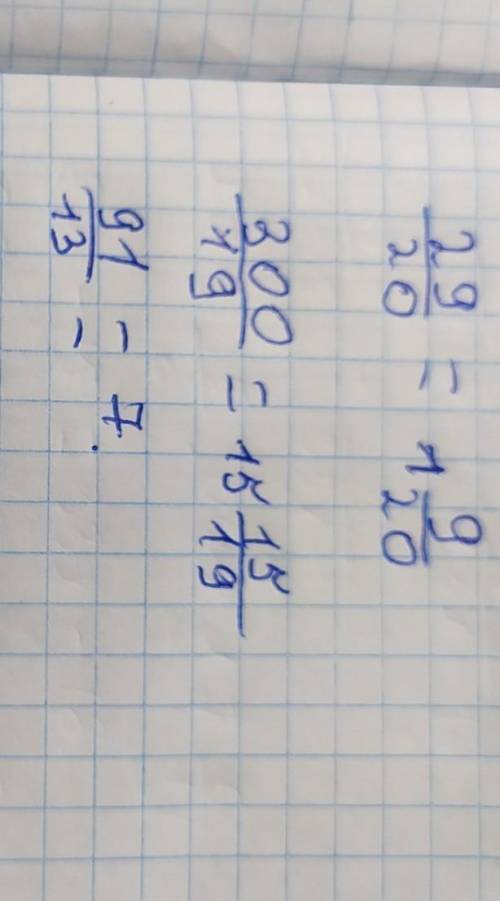 29/20 = 1 9/20
300/19 = 15 15/19
91/13 = 7.